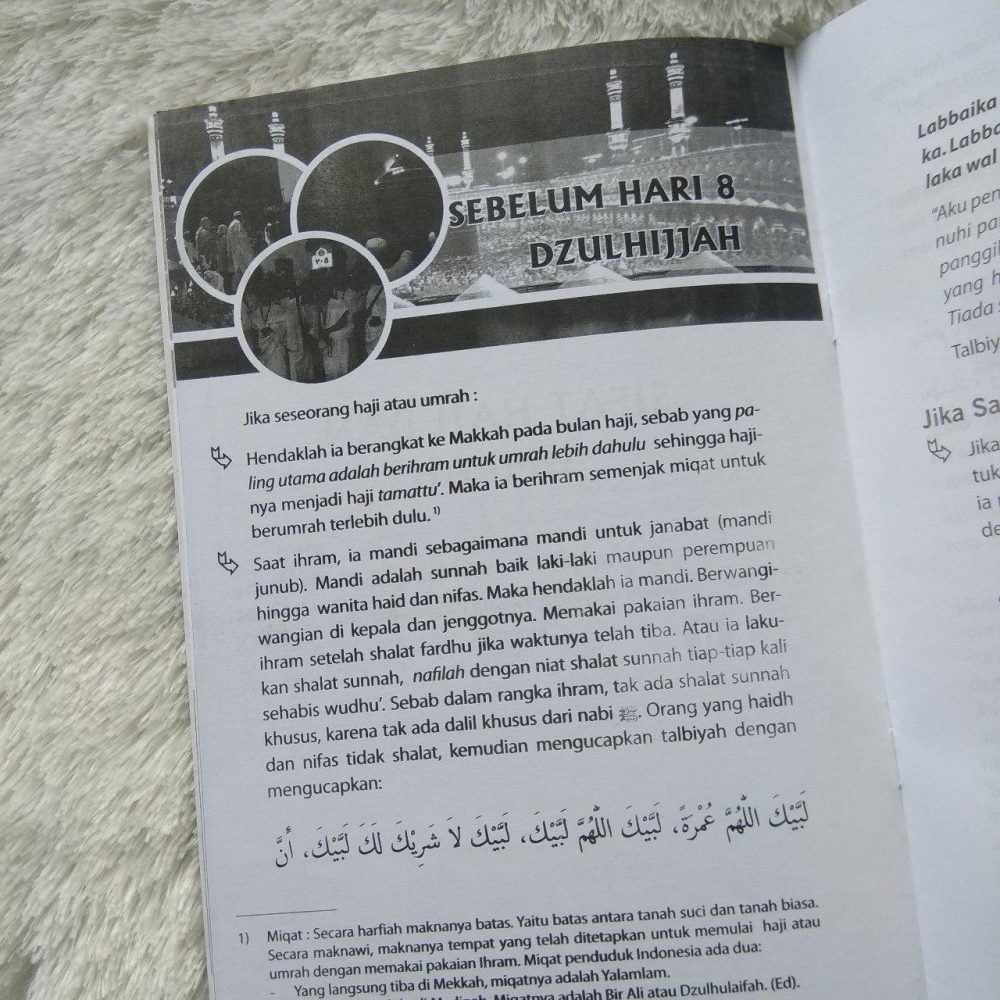 SEBELUM HARI 8
DZULHIJJAH
Jika seseorang haji atau umrah :
Hendaklah ia berangkat ke Makkah pada bulan haji, sebab yang pa-
ling utama adalah berihram untuk umrah lebih dahulu sehingga haji-
nya menjadi haji tamattu'. Maka ia berihram semenjak miqat untuk
berumrah terlebih dulu. 1)
Saat ihram, ia mandi sebagaimana mandi untuk janabat (mandi
junub). Mandi adalah sunnah baik laki-laki maupun perempuan
hingga wanita haid dan nifas. Maka hendaklah ia mandi. Berwangi-
wangian di kepala dan jenggotnya. Memakai pakaian ihram. Ber-
ihram setelah shalat fardhu jika waktunya telah tiba. Atau ia laku-
kan shalat sunnah, nafilah dengan niat shalat sunnah tiap-tiap kali
sehabis wudhu'. Sebab dalam rangka ihram, tak ada shalat sunnah
khusus, karena tak ada dalil khusus dari nabi ﷺ. Orang yang haidh
dan nifas tidak shalat, kemudian mengucapkan talbiyah dengan
mengucapkan:
لَبَّيْكَ اللّٰهُمَّ عُمْرَةً، لَبَّيْكَ اللّٰهُمَّ لَبَّيْكَ، لَبَّيْكَ لاَ شَرِيْكَ لَكَ لَبَّيْكَ، أَنَّ
1) Miqat : Secara harfiah maknanya batas. Yaitu batas antara tanah suci dan tanah biasa.
Secara maknawi, maknanya tempat yang telah ditetapkan untuk memulai haji atau
umrah dengan memakai pakaian Ihram. Miqat penduduk Indonesia ada dua:
- Yang langsung tiba di Mekkah, miqatnya adalah Yalamlam.
Miqatnya adalah Bir Ali atau Dzulhulaifah. (Ed).
Labbaika
ka. Labba
laka wal
"Aku pen
nuhi pa
panggi
yang h
Tiada
Talbiy
Jika Sa
Jika
tuk
ia
de